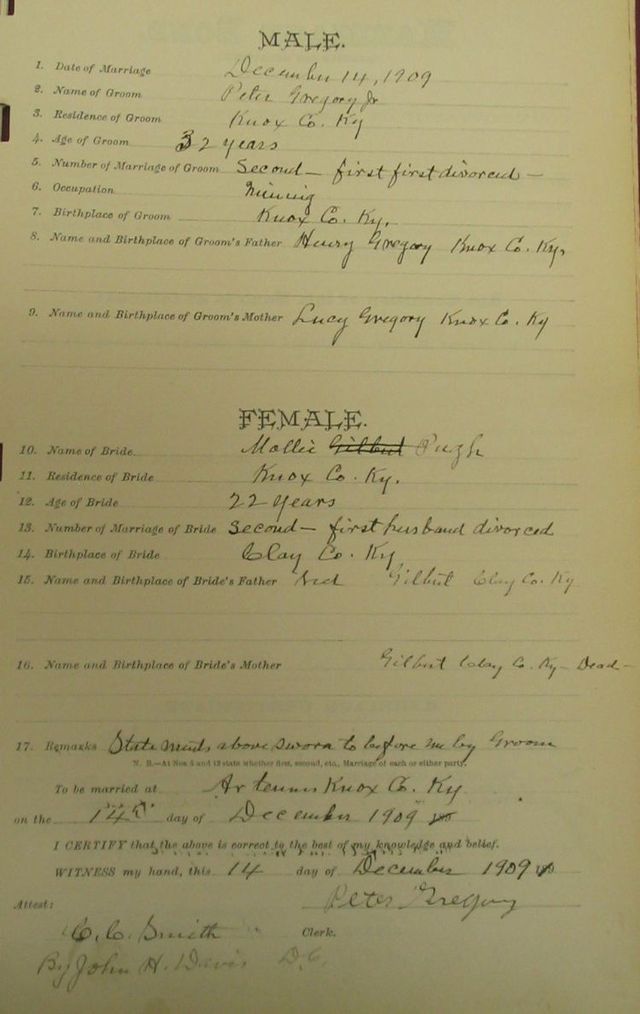 MALE.
1. Date of Marriage December 14, 1909
2. Name of Groom Peter Gregory Jr
3. Residence of Groom Knox Co. Ky
4. Age of Groom 32 years
5. Number of Marriage of Groom Second — first first divorced —
6. Occupation Mining
7. Birthplace of Groom Knox Co. Ky.
8. Name and Birthplace of Groom's Father Henry Gregory Knox Co. Ky.
9. Name and Birthplace of Groom's Mother Lucy Gregory Knox Co. Ky
FEMALE.
10. Name of Bride Mollie Gilbert Pugh
11. Residence of Bride Knox Co. Ky.
12. Age of Bride 22 years
13. Number of Marriage of Bride Second — first husband divorced
14. Birthplace of Bride Clay Co. Ky
15. Name and Birthplace of Bride's Father Gilbert Clay Co. Ky
16. Name and Birthplace of Bride's Mother Gilbert Clay Co. Ky — Dead —
17. Remarks Statements above sworn to before me by Groom
N. B.—At Nos 5 and 13 state whether first, second, etc., Marriage of each or either party.
To be married at Artemus Knox Co. Ky
on the 14th day of December 1909
I CERTIFY that the above is correct to the best of my knowledge and belief.
WITNESS my hand, this 14 day of December 1909
Peter Gregory
Attest:
C. C. Smith Clerk.
By John H. Davis D.C.